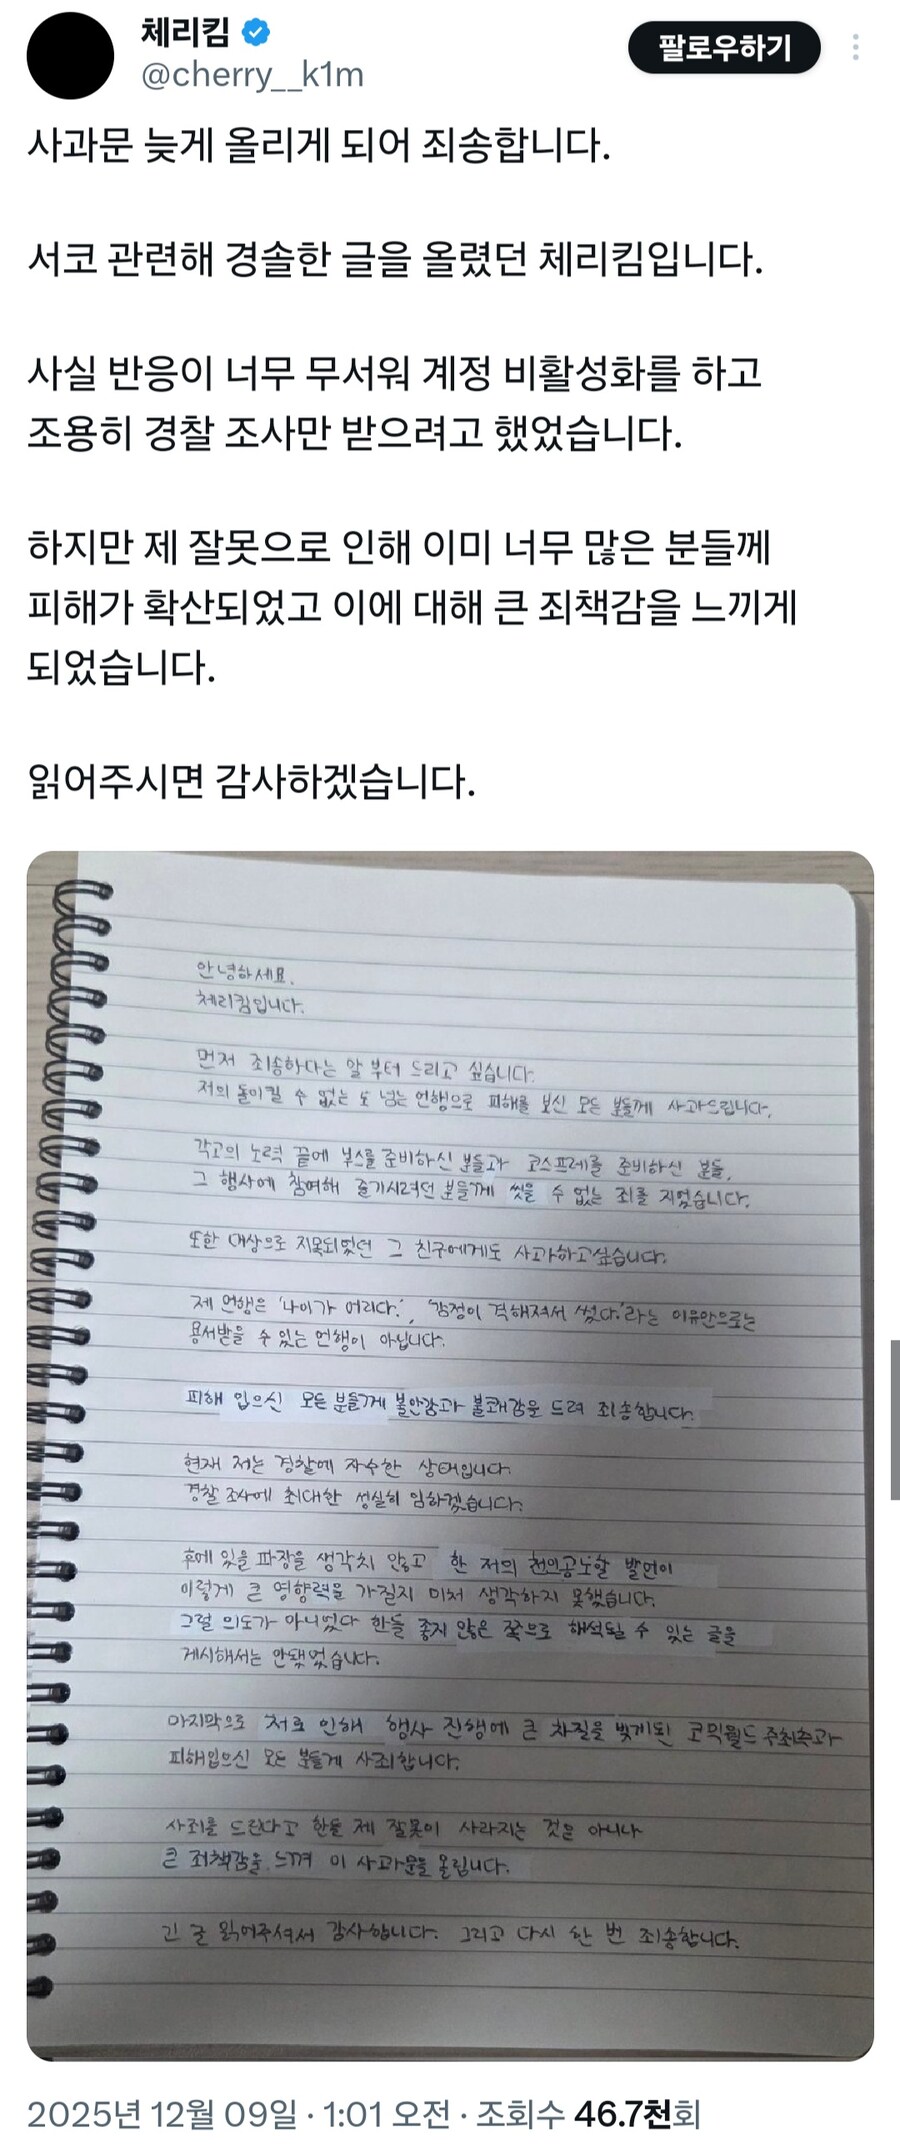 체리킴
@cherry__k1m
팔로우하기
사과문 늦게 올리게 되어 죄송합니다.
서코 관련해 경솔한 글을 올렸던 체리킴입니다.
사실 반응이 너무 무서워 계정 비활성화를 하고
조용히 경찰 조사만 받으려고 했었습니다.
하지만 제 잘못으로 인해 이미 너무 많은 분들께
피해가 확산되었고 이에 대해 큰 죄책감을 느끼게
되었습니다.
읽어주시면 감사하겠습니다.
안녕하세요.
체리킴입니다.
먼저 죄송하다는 말 부터 드리고 싶습니다.
저의 돌이킬 수 없는 도 넘는 언행으로 피해를 보신 모든 분들께 사과드립니다.
각고의 노력 끝에 부스를 준비하신 분들과 코스프레를 준비하신 분들,
그 행사에 참여해 즐기시려던 분들께 씻을 수 없는 죄를 지었습니다.
또한 대상으로 지목되었던 그 친구에게도 사과하고싶습니다.
제 언행은 '나이가 어리다.', '감정이 격해져서 썼다.'라는 이유만으로는
용서받을 수 있는 언행이 아닙니다.
피해 입으신 모든 분들께 불안감과 불쾌감을 드려 죄송합니다.
현재 저는 경찰에 자수한 상태입니다.
경찰 조사에 최대한 성실히 임하겠습니다.
후에 있을 파장을 생각치 않고 한 저의 천인공노할 발언이
이렇게 큰 영향력을 가질지 미처 생각하지 못했습니다.
그럴 의도가 아니었다 한들 좋지 않은 쪽으로 해석될 수 있는 글을
게시해서는 안됐었습니다.
마지막으로 저로 인해 행사 진행에 큰 차질을 빚게된 코믹월드 주최측과
피해입으신 모든 분들께 사죄합니다.
사죄를 드린다고 한들 제 잘못이 사라지는 것은 아니나
큰 죄책감을 느껴 이 사과문을 올립니다.
긴 글 읽어주셔서 감사합니다. 그리고 다시 한 번 죄송합니다.
2025년 12월 09일 · 1:01 오전 · 조회수 46.7천회